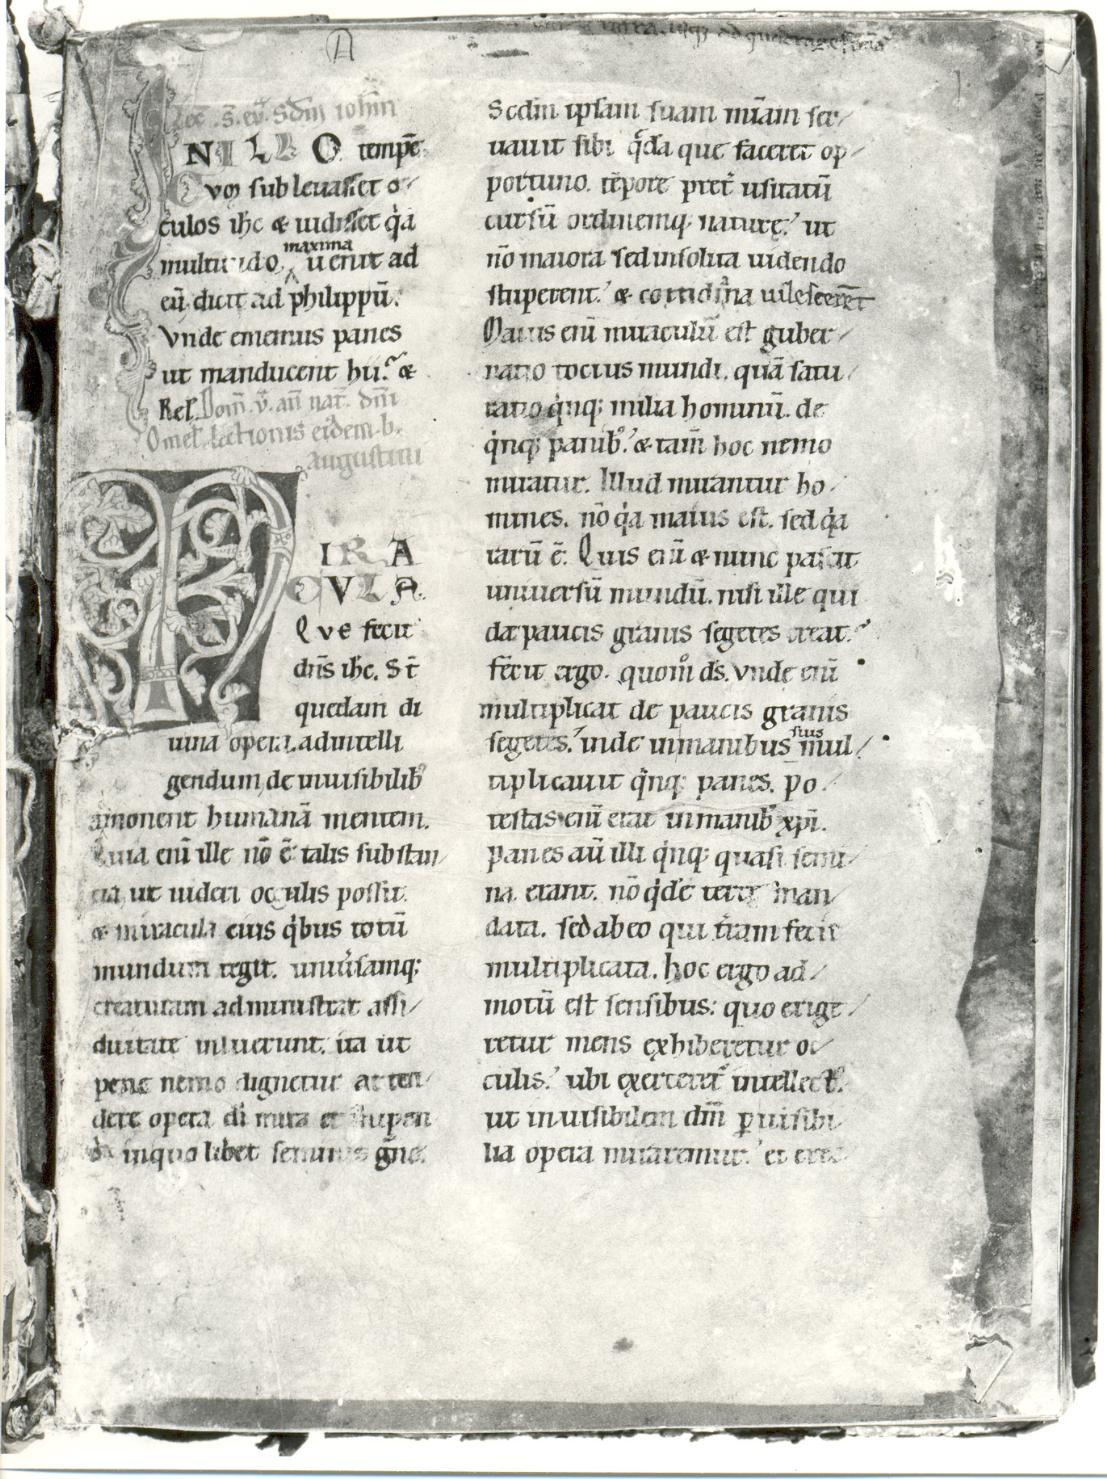 A
Lec. s. eu. Scdm ioħm
IN ILLO tempe
Cvm subleuasset o
culos ihc & uidisset q̇a
multitudo maxima uenit ad
eū dicit ad philippū.
Vnde ememus panes
ut manducent hii? &
Rel̄. Dom̄. v. an̄ nat. dm̄i
Omel. lectionis eidem b.
augustini
MIRA
CVLA
Que fecit
dn̄s ihc. St̄
quedam di
uina opera. ad intelli
gendum de inuisibilib᷒
amonent humanā mentem.
Quia eni ille nō ē talis substan
cia ut uideri oculis possit.
& miracula eius q̇bus totū
mundum regit. uniūsamq;
creaturam administrat assi
duitate inluerunt. ita ut
pene nemo dignetur atten
dere opera di mira et stupen
da inquo libet seminis g̅no.
Scdm ipsam suam m̄iam ser
uauit sibi q̇da que faceret op
portuno. tēpore pret̄ usitatū
cursū ordinemq; naturę. ut
nō maiora sed insolita uidendo
stuperent. & cottidiana uilescerent
Maius enī miraculū est guber
natio tocius mundi. quā satu
ratio q̇nq; milia hominū. de
q̇nq; panib᷒. & tam̄ hoc nemo
miratur. Illud mirantur ho
mines. nō q̇a maius est. sed q̇a
rarū ē. Quis enī & nunc pascit
uniuersū mundū. nisi ille qui
de paucis granis segetes creat.
fecit ergo. quom̊ ds̄. vnde enī
multiplicat de paucis granis
segetes. inde inmanibus suis mul
tiplicauit q̇nq; panes. po
testas enī erat inmanib᷒ xp̄i.
panes aū illi q̇nq; quasi semi
na erant. nō q̇dē terrę man
data. sed ab eo qui t̄ram fecit
multiplicata. hoc ergo ad
motū est sensibus: quo erige
retur mens exhiberetur o
culis. ubi exerceret intellect᷒.
ut inuisibilem dm̄ p uisibi
lia opera miraremur. et erec